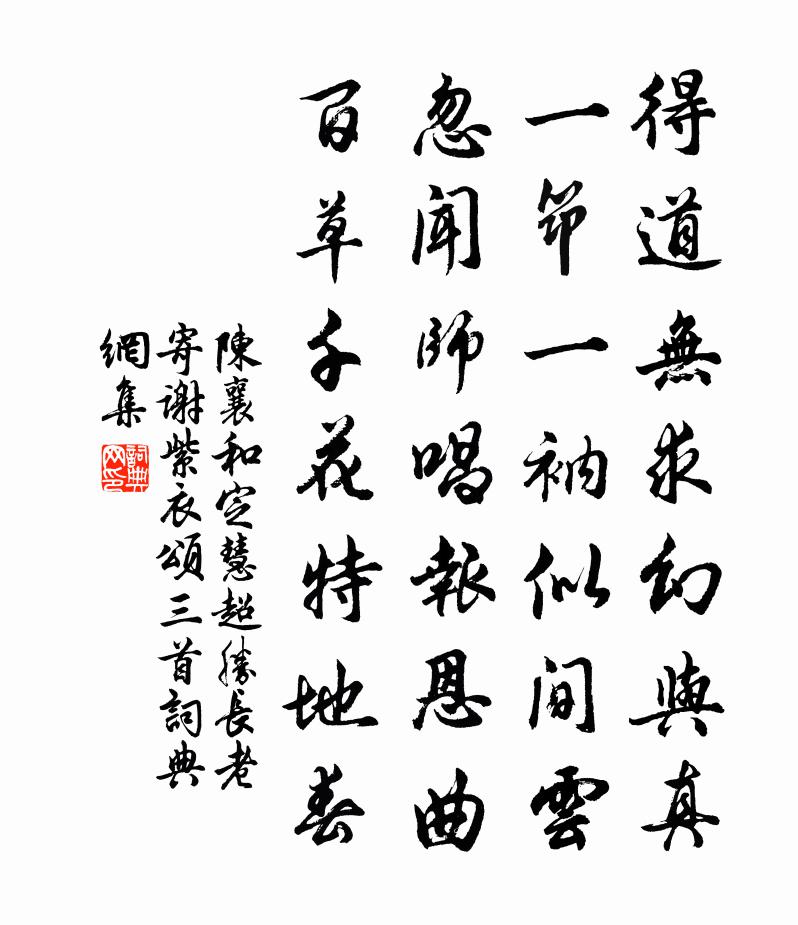 得道無求幻與真
一笻一衲似閒雲
忽聞師唱報恩曲
百草千花特地春
陳襄和定慧超勝長老
寄谢紫衣頌三首詞典
網集
詞典
网印